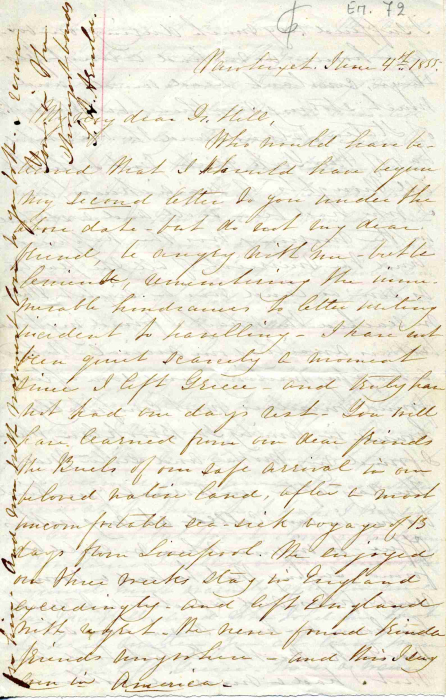 Em. 72
Pawtuxet. June 4th. 1855.
My dear Dr. Hill,
Who would have be-
lieved that I should have begun
my second letter to you under the
above date - but do not my dear
friend, be angry with me - but be
lenient, remembering the innu-
merable hindrances to letter writing
incident to travelling - I have not
been quiet scarcely a moment
since I left Greece and truly have
not had one day's rest - You will
have learned from our dear friends
the Buels of our safe arrival in our
beloved native land, after a most
uncomfortable sea-sick voyage of 13
days from Liverpool. We enjoyed
our three weeks stay in England
exceedingly - and left England
with regret. We never found kinder
friends anywhere - and this I say
even in America -